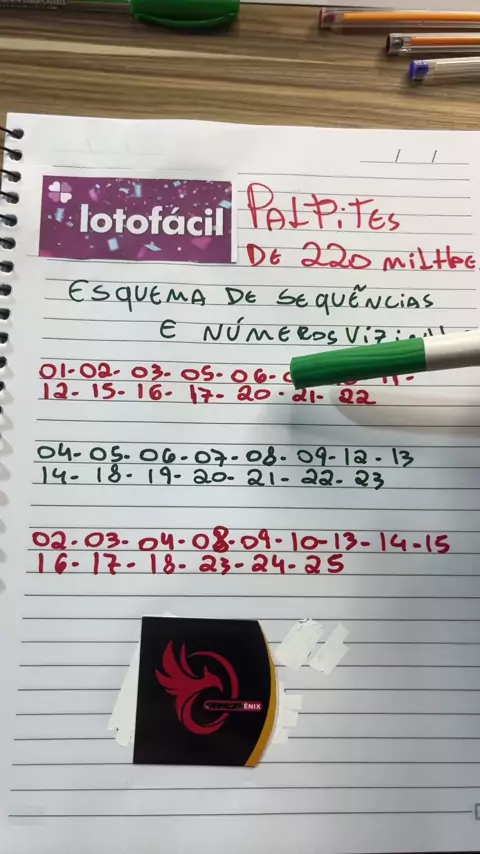 lotofácil
PALPITES
DE 220 MILHÕE
ESQUEMA DE SEQUÊNCIAS
E NÚMEROS
01-02-03-05-06-
12-15-16-17-20-21-22
04-05-06-07-08-09-12-13
14-18-19-20-21-22-23
02-03-04-08-09-10-13-14-15
16-17-18-23-24-25
ÊNIX